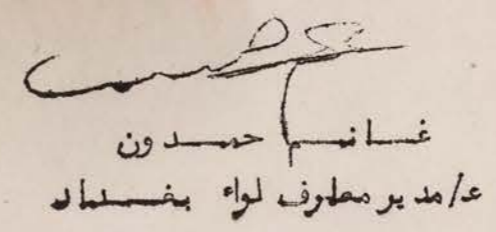 غانم حمدون
ع/مدير معارف لواء بغداد